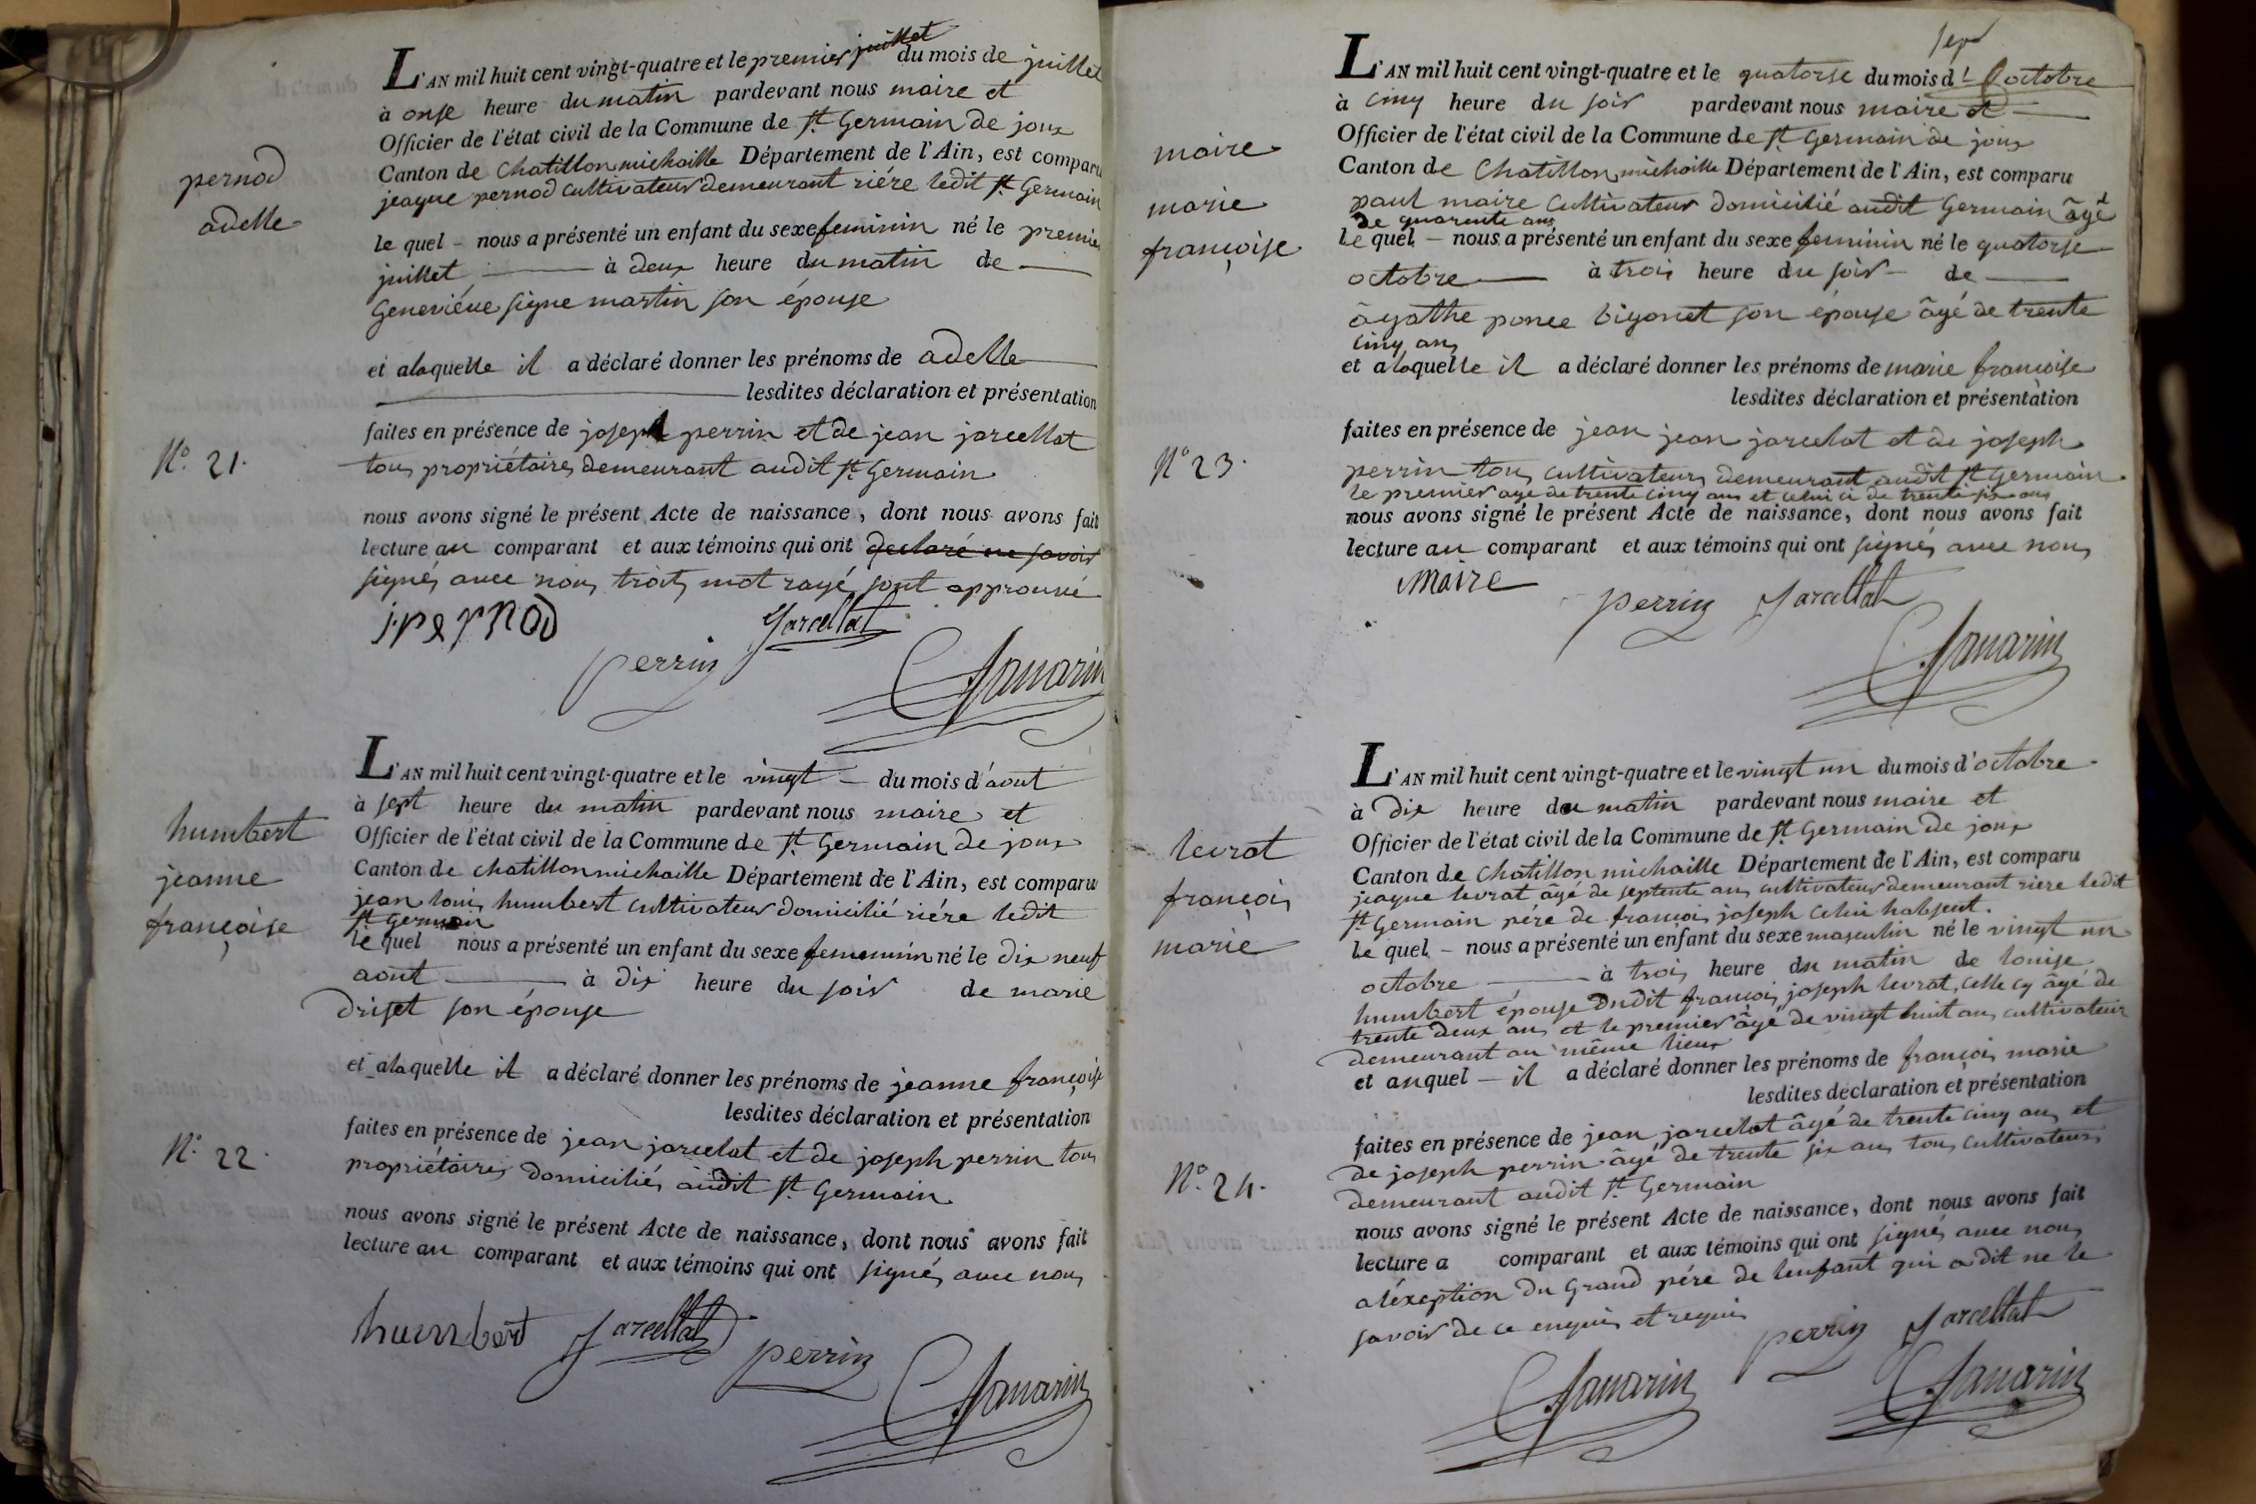 L'AN mil huit cent vingt-quatre et le premier juillet du mois de juillet
à onse heure du matin pardevant nous maire et
Officier de l'état civil de la Commune de St. Germain de joux
Canton de Chatillon michaille Département de l'Ain, est comparu
jeaque pernod cultivateur demeurant riére ledit St. Germain
le quel - nous a présenté un enfant du sexe feminin né le premier
juillet à deux heure du matin de
Geneviéve signe martin son épouse
et alaquelle il a déclaré donner les prénoms de adelle
lesdites déclaration et présentation
faites en présence de joseph perrin et de jean jarcellat
tous propriétaires demeurant audit St. Germain
nous avons signé le présent Acte de naissance, dont nous avons fait
lecture au comparant et aux témoins qui ont declaré ne savoir
signés avec nous trois mot rayé sont approuvé
pernod
adelle
N.o 21.
j. pernod
Jarcellat
perrin
Savarin
L'AN mil huit cent vingt-quatre et le vingt - du mois d'aout
à sept heure du matin pardevant nous maire et
Officier de l'état civil de la Commune de St. Germain de joux
Canton de chatillon michaille Département de l'Ain, est comparu
jean louis humbert cultivateur domicilié riére ledit
St. Germain
le quel nous a présenté un enfant du sexe femeninin né le dix neuf
aout à dix heure du soir de marie
driset son épouse
et alaquelle il a déclaré donner les prénoms de jeanne françoise
lesdites déclaration et présentation
faites en présence de jean jarcelat et de joseph perrin tous
propriétaires domiciliés audit St. Germain
nous avons signé le présent Acte de naissance, dont nous avons fait
lecture au comparant et aux témoins qui ont signés avec nous
humbert
jeanne
françoise
N.o 22.
humbert Jarcellat perrin
Savarin
sept
L'AN mil huit cent vingt-quatre et le quatorse du mois d' octobre
à cinq heure du soir pardevant nous maire et
Officier de l'état civil de la Commune de St. Germain de joux
Canton de Chatillon michaille Département de l'Ain, est comparu
paul maire cultivateur domicilié audit Germain âgé
de quarente ans
le quel - nous a présenté un enfant du sexe feminin né le quatorse
octobre à trois heure du soir - de
âgathe ponce bigonet son épouse âgé de trente
cinq ans
et alaquelle il a déclaré donner les prénoms de marie françoise
lesdites déclaration et présentation
faites en présence de jean jean jarcelat et de joseph
perrin tous cultivateurs demeurant audit St. Germain
le premier age de trente cinq ans et celui ci de trente six ans
nous avons signé le présent Acte de naissance, dont nous avons fait
lecture au comparant et aux témoins qui ont signés avec nous
maire
marie
françoise
N.o 23.
Maire perrin Jarcellat
Savarin
L'AN mil huit cent vingt-quatre et le vingt un du mois d'octobre
à dix heure du matin pardevant nous maire et
Officier de l'état civil de la Commune de St. Germain de joux
Canton de Chatillon michaille Département de l'Ain, est comparu
jeaque levrat âgé de septente ans cultivateur demeurant riere ledit
St. Germain pére de françois joseph celui habsent.
le quel - nous a présenté un enfant du sexe masculin né le vingt un
octobre à trois heure du matin de louise
humbert épouse dudit françois joseph levrat, celle cy âgé de
trente deux ans et le premier âgé de vingt huit ans cultivateur
demeurant au même lieux
et auquel - il a déclaré donner les prénoms de françois marie
lesdites déclaration et présentation
faites en présence de jean jarcelat âgé de trente cinq ans et
de joseph perrin âgé de trente six ans tous cultivateurs
demeurant audit St. Germain
nous avons signé le présent Acte de naissance, dont nous avons fait
lecture a comparant et aux témoins qui ont signés avec nous
aléxeption du Grand pére de lenfant qui a dit ne le
savoir de ce enquis et requis
levrat
françois
marie
N.o 24.
perrin Jarcellat
Savarin Savarin